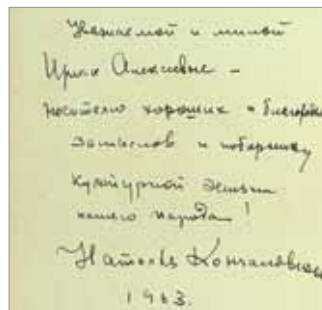 Уважаемой и милой
Ирине Алексеевне –
носителю хороших и благородн
замыслов и поборнику
культурной жизни
нашего народа!
Наталья Кончаловская
1983.